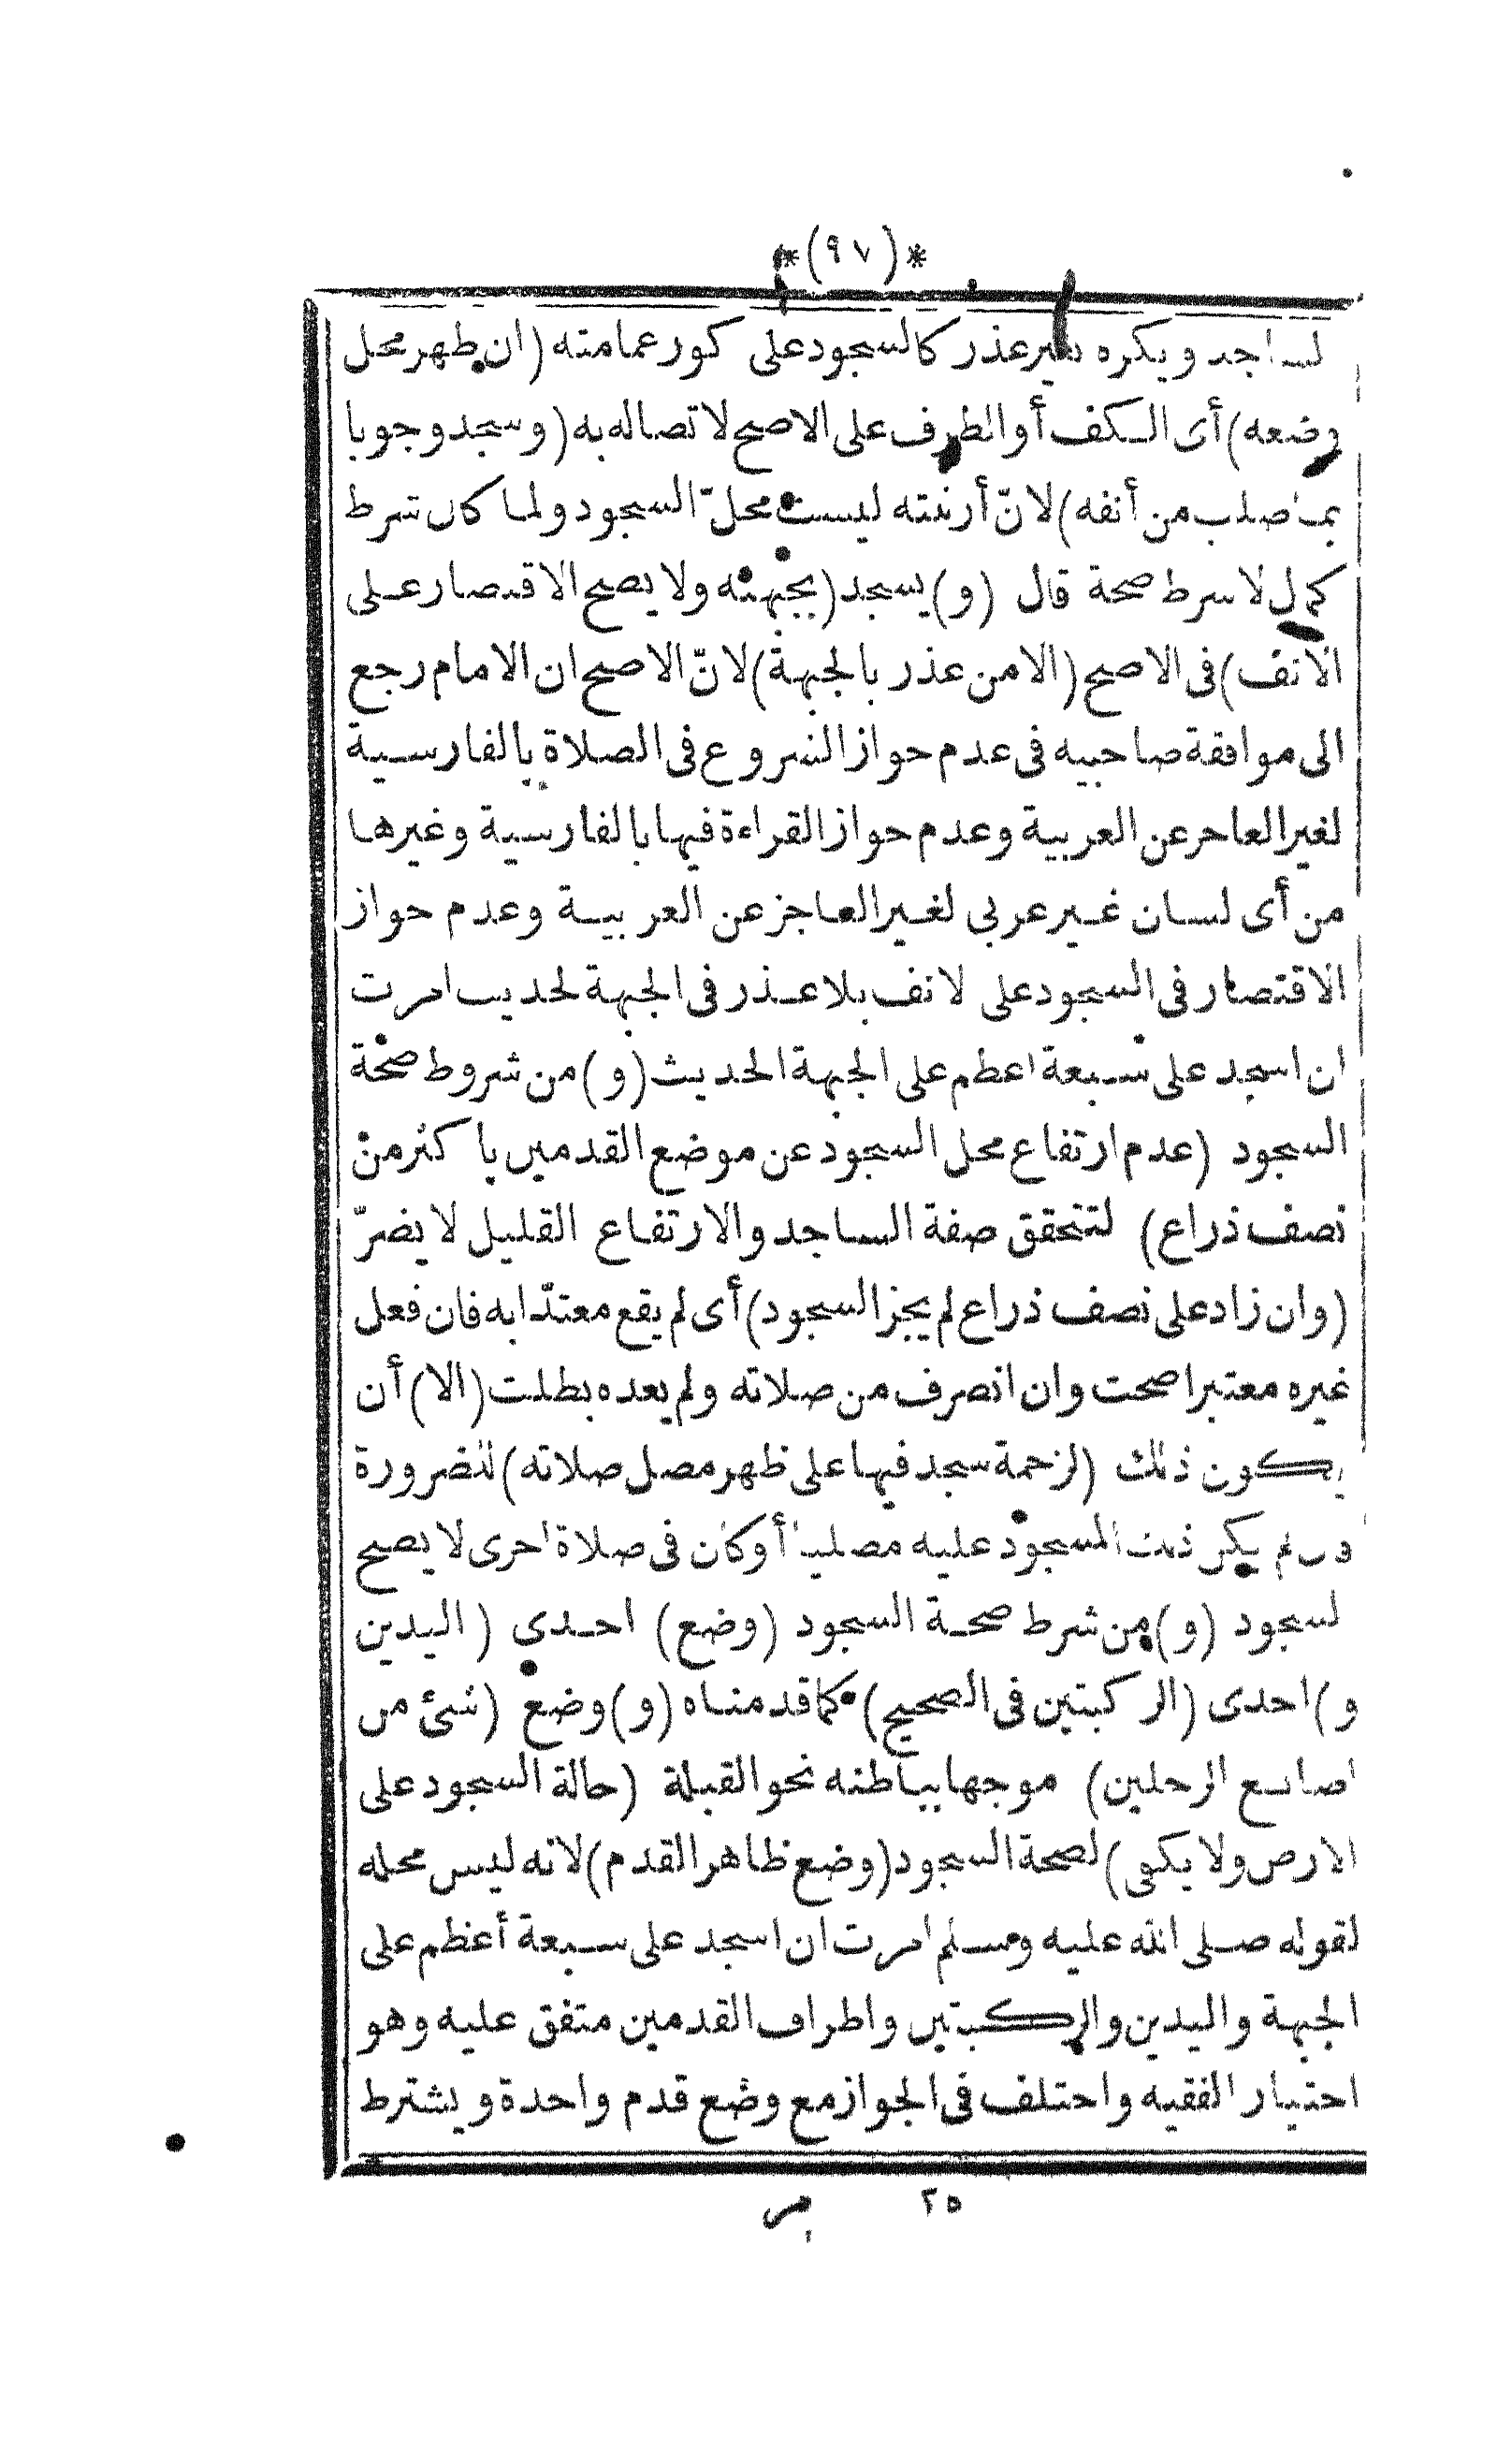 *(٩٧)*
لساجد ويكره بغير عذر كالسجود على كور عمامته (ان طهر محل
وضعه) أى الكف أو الطرف على الاصح لاتصاله به (وسجد وجوبا
بما صلب من أنفه) لانّ أرنبته ليست محلّ السجود ولما كان شرط
كمل لا شرط صحة قال (و) يسجد (بجبهته ولا يصح الاقتصار على
الانف) فى الاصح (الا من عذر بالجبهة) لانّ الاصح ان الامام رجع
الى موافقة صاحبيه فى عدم جواز الشروع فى الصلاة بالفارسية
لغير العاجز عن العربية وعدم جواز القراءة فيها بالفارسية وغيرها
من أى لسان غير عربى لغير العاجز عن العربية وعدم جواز
الاقتصار فى السجود على لانف بلا عذر فى الجبهة لحديث امرت
ان اسجد على سبعة اعظم على الجبهة الحديث (و) من شروط صحة
السجود (عدم ارتفاع محل السجود عن موضع القدمين باكثر من
نصف ذراع) لتتحقق صفة الساجد والارتفاع القليل لا يضرّ
(وان زاد على نصف ذراع لم يجز السجود) أى لم يقع معتدّا به فان فعل
غيره معتبرا صحت وان انصرف من صلاته ولم يعده بطلت (الا) أن
يكون ذلك (لزحمة سجد فيها على ظهر مصل صلاته) للضرورة
فان لم يكن ذلك المسجود عليه مصليا أو كان فى صلاة اخرى لا يصح
لسجود (و) من شرط صحة السجود (وضع) احدى (اليدين
و) احدى (الركبتين فى الصحيح) كما قدمناه (و) وضع (شئ من
اصابع الرجلين) موجها بباطنه نحو القبلة (حالة السجود على
الارض ولا يكفى) لصحة السجود (وضع ظاهر القدم) لانه ليس محله
لقوله صلى الله عليه وسلم امرت ان اسجد على سبعة أعظم على
الجبهة واليدين والركبتين واطراف القدمين متفق عليه وهو
اختيار الفقيه واختلف فى الجواز مع وضع قدم واحدة ويشترط
٢٥ مر